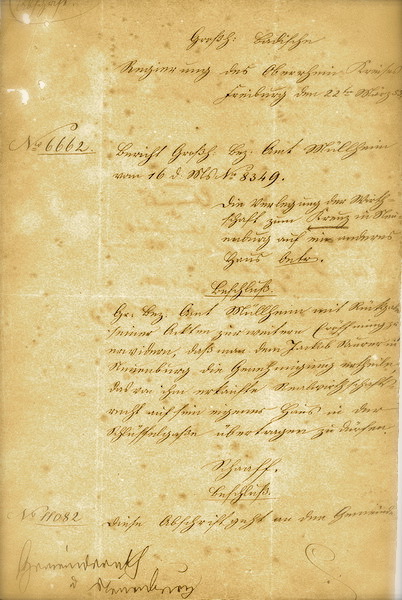 Abschrift.
Großh: Badische
Regierung des Oberrhein Kreises
Freiburg den 22ten März
No 6662. Bericht Großh: Bez: Amt Müllheim
vom 16 d. Ms No 8349.
Die Verlegung der Wirth-
schaft zum Kreuz in Neu-
enburg auf ein anderes
Haus betr.
Beschluß.
Gr. Bez. Amt Müllheim mit Rückgabe
seiner Akten zur weitern Eröffnung zu
erwidern, daß man dem Jakob in
Neuenburg die Genehmigung ertheile,
das von ihm erkaufte Realwirthschafts
recht auf sein eigenes Haus in der
Schlüsselgaße übertragen zu dürfen.
Schaaff.
Beschluß.
No 11082 Diese Abschrift geht an den Gemeinde
Gemeinderath
Neuenburg